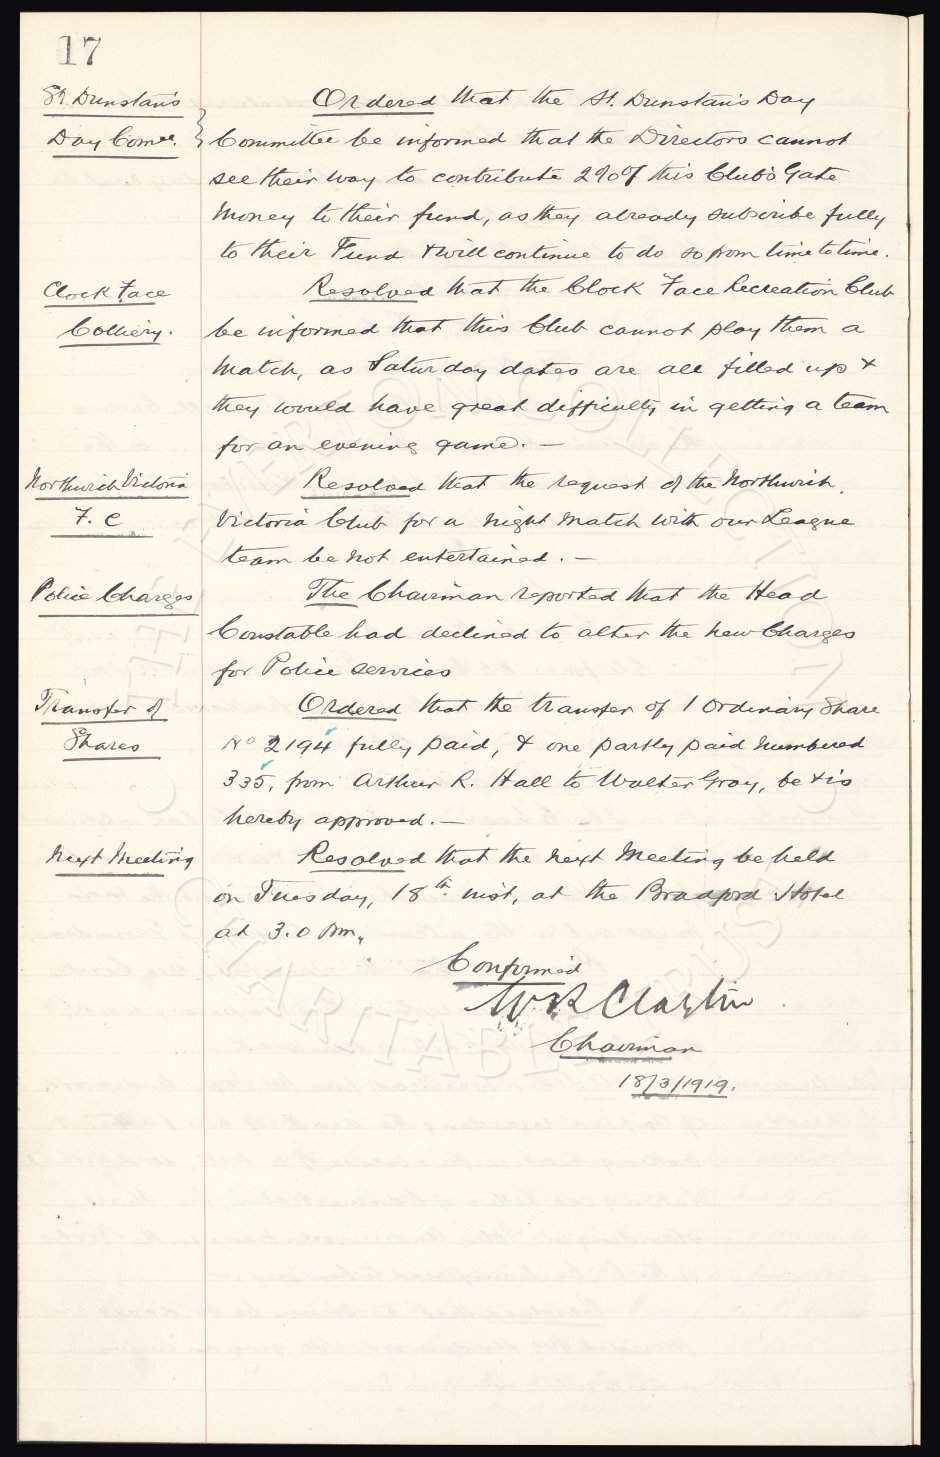 17
St. Dunstan's
Day Comee.
Ordered that the St. Dunstan's Day
Committee be informed that the Directors cannot
see their way to contribute 2% of this Club's Gate
Money to their fund, as they already subscribe fully
to their Fund & will continue to do so from time to time.
Clock Face
Colliery.
Resolved that the Clock Face Recreation Club
be informed that this Club cannot play them a
Match, as Saturday dates are all filled up &
they would have great difficulty in getting a team
for an evening game. —
Northwich Victoria
F. C
Resolved that the request of the Northwich
Victoria Club for a night match with our League
team be not entertained. —
Police Charges
The Chairman reported that the Head
Constable had declined to alter the new Charges
for Police services
Transfer of
Shares
Ordered that the transfer of 1 Ordinary Share
No 2194 fully paid, & one partly paid numbered
335, from Arthur R. Hall to Walter Gray, be & is
hereby approved. —
Next Meeting
Resolved that the next Meeting be held
on Tuesday, 18th. inst, at the Bradford Hotel
at 3.0 Pm.
Confirmed
W R Clayton
Chairman
18/3/1919.
THE EVERTON COLLECTION
CHARITABLE TRUST